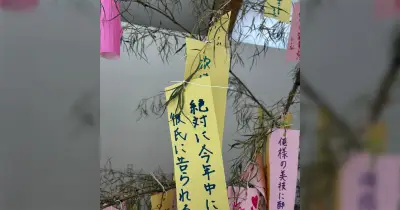 絶対に今年中に
彼氏に告られる
俺様の美技に酔